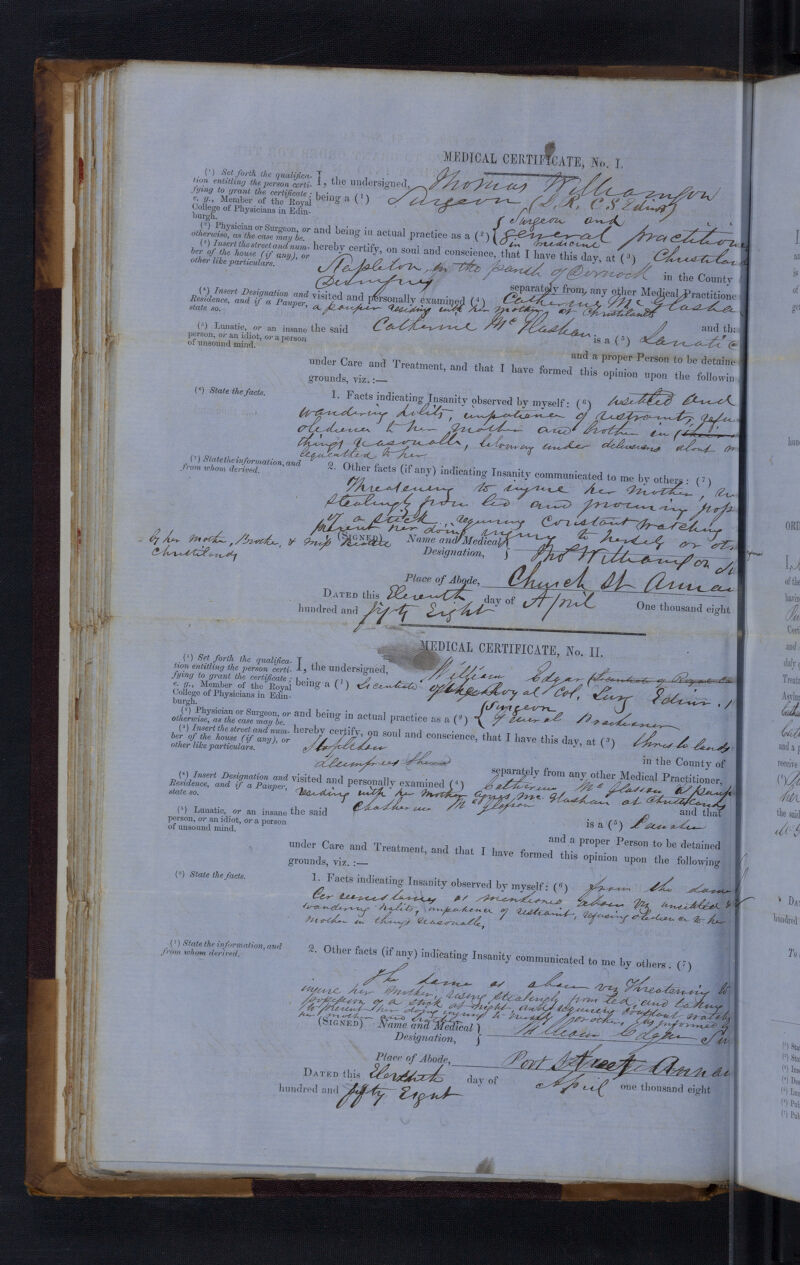 MEDICAL CERTIFICATE, No. I.
(1) Set forth the qualifica-
tion entitling the person certi-
fying to grant the certificate;
e. g., Member of the Royal
College of Physicians in Edin-
burgh.
I, the undersigned, Thomas Williamson
being a (1) Surgeon, (L. R. C. S. Edinr)
(2) Physician or Surgeon, or
otherwise, as the case may be.
and being in actual practice as a (2) { Surgeon and
general practitione
in medicine
(3) Insert the street and num-
ber of the house (if any), or
other like particulars.
hereby certify, on soul and conscience, that I have this day, at (3) Christilan
Stapleton, in the parish of Dornock in the County
Dumfries separately from any other Medical Practitione
(4) Insert Designation and
Residence, and if a Pauper,
state so.
visited and personally examined (4) Catherine Mc Glasha
a pauper residing with her mother at Christilands
(5) Lunatic, or an insane
person, or an idiot, or a person
of unsound mind.
the said Catherine Mc Glashan and tha
is a (5) Lunatic
and a proper Person to be detaine
under Care and Treatment, and that I have formed this opinion upon the followin
grounds, viz.:—
(6) State the facts.
1. Facts indicating Insanity observed by myself: (6) unsettled and
wandering habits, impatience of restraint, refu
obedience to her mother and brother in
things reasonable, labouring under delusions about
to her
(7) State the information, and
from whom derived.
2. Other facts (if any) indicating Insanity communicated to me by others: (7)
Threatening to injure her mother,
stealingly from bed and
of a stick, requiring constant watching
prevent her doing injury to herself or oth
by her mother, Brother, & Miss
Christilands
(Signed) Name and Medical
Designation, } Thos Williamson
Place of Abode, Church St Annan
Dated this Eleventh day of April One thousand eight
hundred and fifty Eight
MEDICAL CERTIFICATE, No. II.
(1) Set forth the qualifica-
tion entitling the person certi-
fying to grant the certificate;
e. g., Member of the Royal
College of Physicians in Edin-
burgh.
I, the undersigned, William Edgar Licentiate of Royal
being a (1) Licentiate of the Royal Col. Surg Edinr.
(2) Physician or Surgeon, or
otherwise, as the case may be.
and being in actual practice as a (2) { Surgeon
General Practioner
(3) Insert the street and num-
ber of the house (if any), or
other like particulars.
hereby certify, on soul and conscience, that I have this day, at (3) Christolands
Stapleton in the County of
Dumfries separately from any other Medical Practitioner,
(4) Insert Designation and
Residence, and if a Pauper,
state so.
visited and personally examined (4) Catherine Mc Glasson a paup
residing with her mother Agnes Mc Glashan at Christilands
(5) Lunatic, or an insane
person, or an idiot, or a person
of unsound mind.
the said Chatherine Mc Glasson and that
is a (5) Lunatic
and a proper Person to be detained
under Care and Treatment, and that I have formed this opinion upon the following
grounds, viz.:—
(6) State the facts.
1. Facts indicating Insanity observed by myself: (6) from the same
Circumstances as mentioned above viz unsettled &
wandering habits, impatience of restraint, refusing obedience to her
mother in things reasonable,
(7) State the information, and
from whom derived.
2. Other facts (if any) indicating Insanity communicated to me by others. (7)
The same as above viz Threatening to
injure her mother, rising stealingly from bed, and taking
possession of a stick at night and requiring constant watch
to prevent her doing injury to herself or others. As informed by
her mother and brother
(Signed) Name and Medical
Designation, } William Edgar Sur
Place of Abode, Port Street Annan
Dated this Eleventh day of April one thousand eight
hundred and fifty Eight